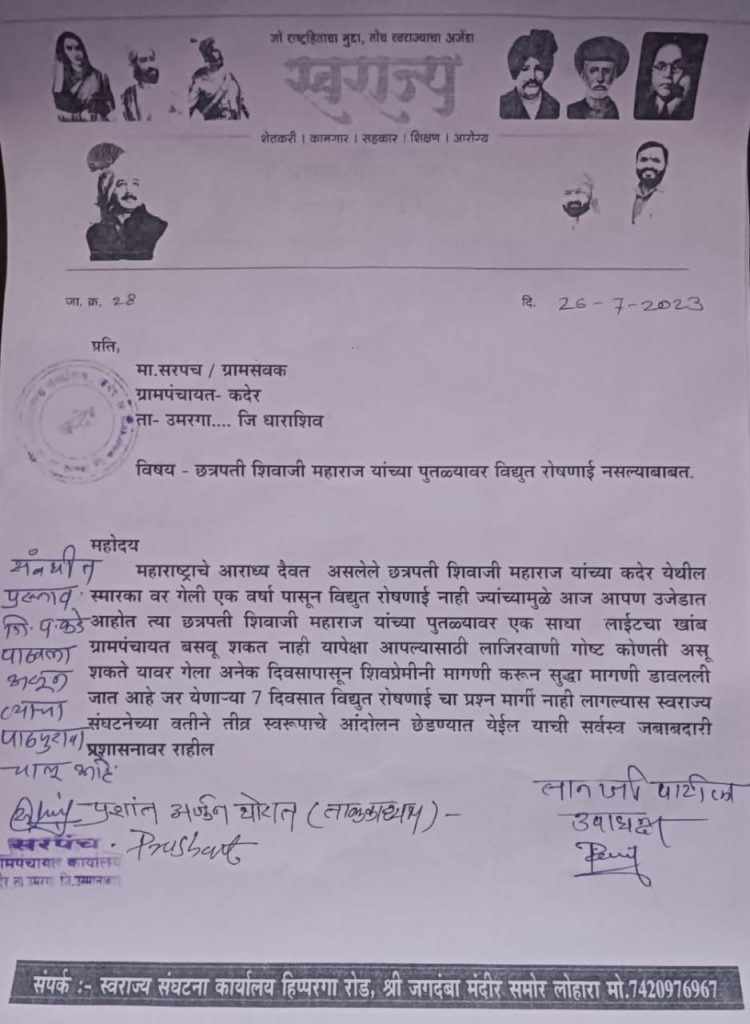 जो राष्ट्रहिताचा मुद्दा, तोच स्वराज्याचा अजेंडा
स्वराज्य
शेतकरी । कामगार । सहकार । शिक्षण । आरोग्य
जा. क्र. 28
दि. 26-7-2023
प्रति,
मा.सरपच / ग्रामसंवक
ग्रामपंचायत- कदेर
ता- उमरगा.... जि धाराशिव
विषय - छत्रपती शिवाजी महाराज यांच्या पुतळ्यावर विद्युत रोषणाई नसल्याबाबत.
महोदय
महाराष्ट्राचे आराध्य दैवत असलेले छत्रपती शिवाजी महाराज यांच्या कदेर येथील
स्मारका वर गेली एक वर्षा पासून विद्युत रोषणाई नाही ज्यांच्यामुळे आज आपण उजेडात
आहोत त्या छत्रपती शिवाजी महाराज यांच्या पुतळ्यावर एक साधा लाईटचा खांब
ग्रामपंचायत बसवू शकत नाही यापेक्षा आपल्यासाठी लाजिरवाणी गोष्ट कोणती असू
शकते यावर गेला अनेक दिवसापासून शिवप्रेमीनी मागणी करून सुद्धा मागणी डावलली
जात आहे जर येणाऱ्या 7 दिवसात विद्युत रोषणाई चा प्रश्न मार्गी नाही लागल्यास स्वराज्य
संघटनेच्या वतीने तीव्र स्वरूपाचे आंदोलन छेडण्यात येईल याची सर्वस्व जबाबदारी
प्रशासनावर राहील
संबधीत
प्रस्ताव
जि. प. कडे
पाठवला
असून
त्याचा
पाठपुरावा
चालू आहे
प्रशांत अर्जुन थोरात (तालुकाध्यक्ष) -
Prashant
सरपंच
ग्रामपंचायत कार्यालय
ता उमरगा जि.उस्मानाबाद
पाटील
उपाध्यक्ष
संपर्क :- स्वराज्य संघटना कार्यालय हिप्परगा रोड, श्री जगदंबा मंदीर समोर लोहारा मो.7420976967